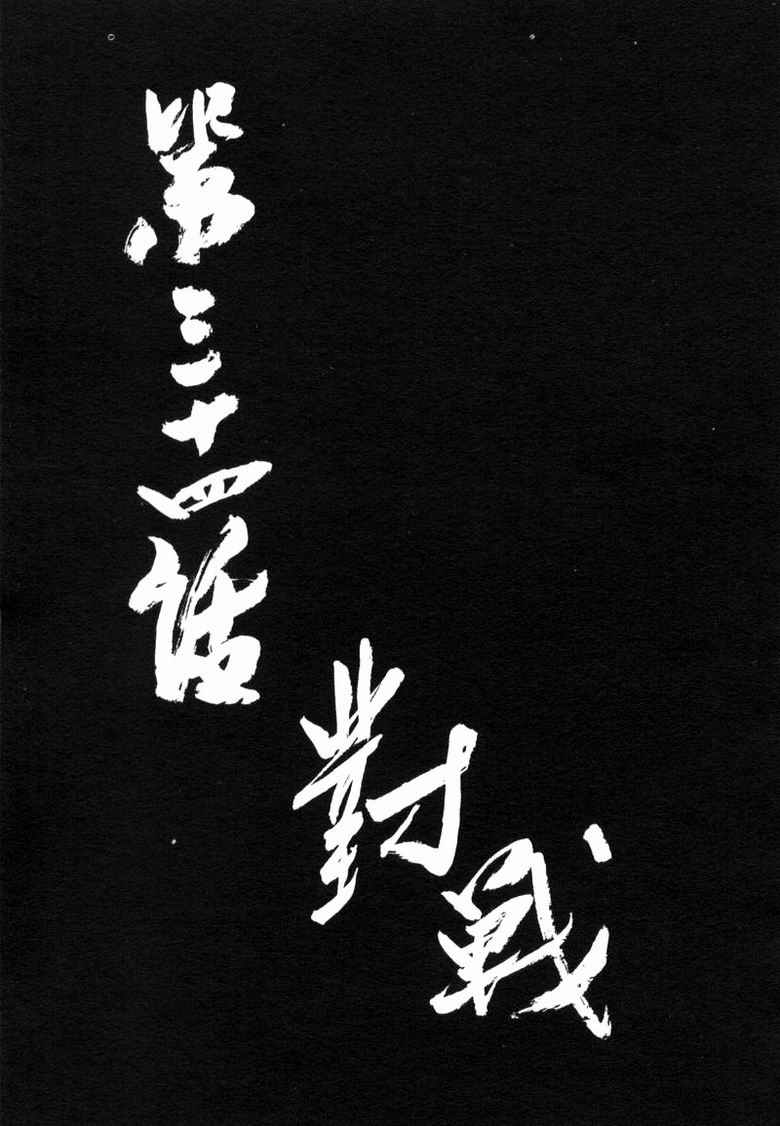 第三十四話
對戰